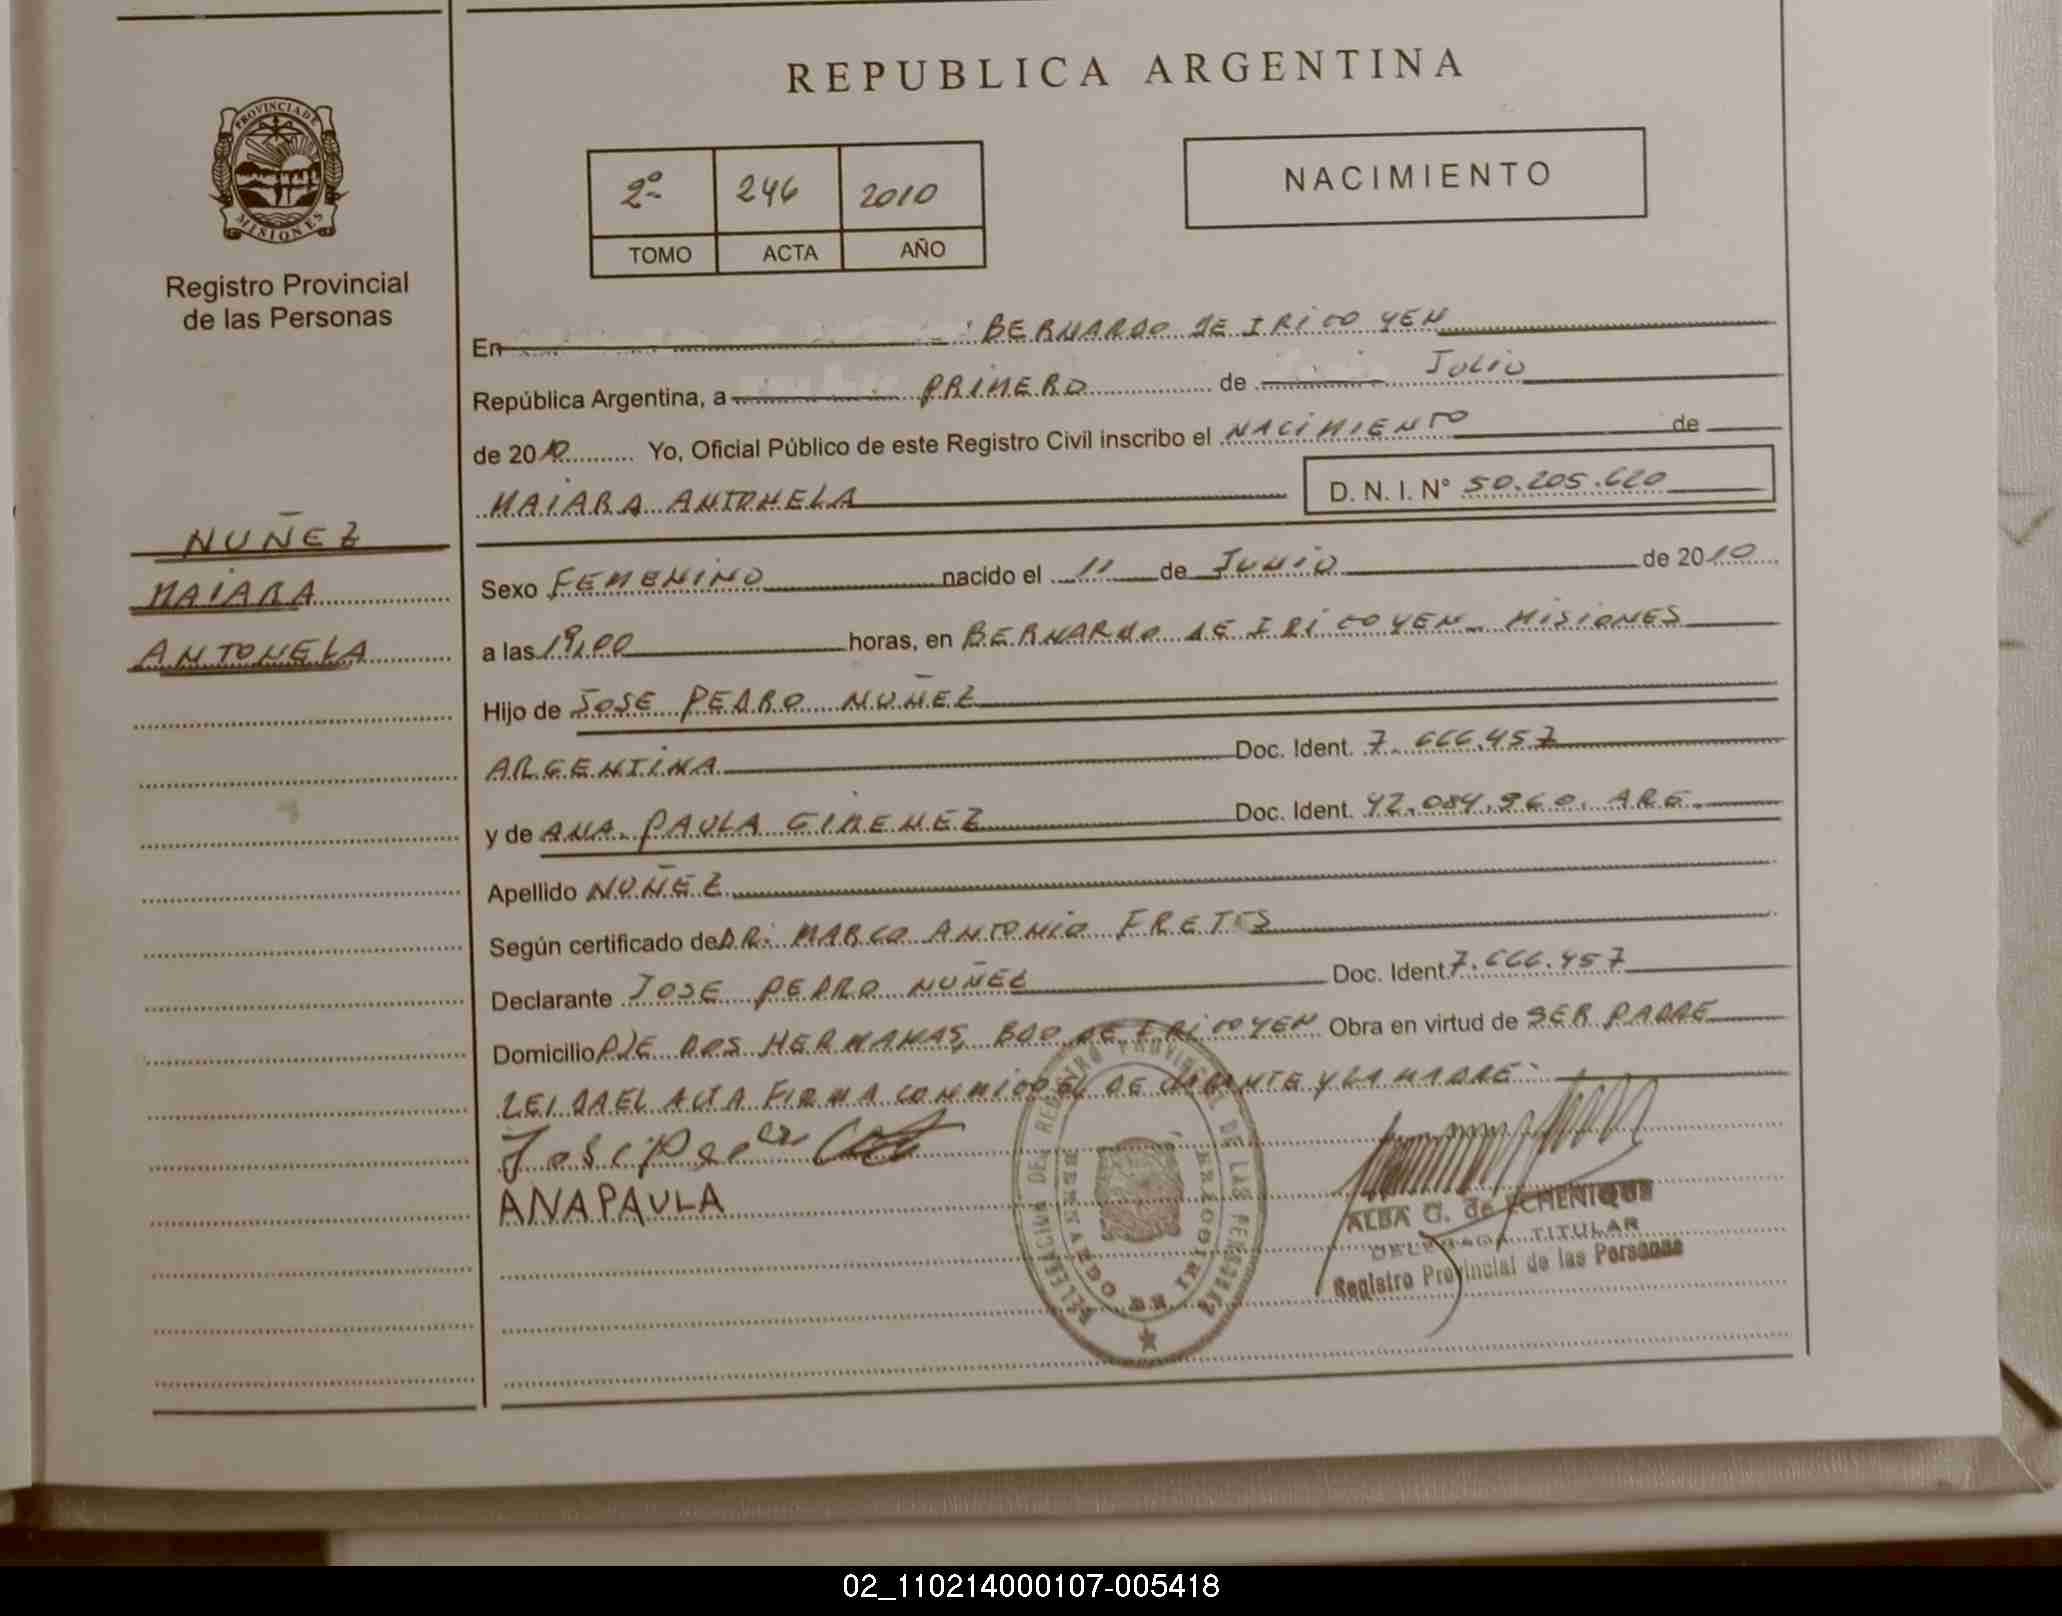 REPUBLICA ARGENTINA
PROVINCIA DE
MISIONES
Registro Provincial
de las Personas
2º 246 2010
TOMO ACTA AÑO
NACIMIENTO
En BERNARDO DE IRIGOYEN
República Argentina, a PRIMERO de JULIO
de 2010 Yo, Oficial Público de este Registro Civil inscribo el NACIMIENTO de
MAIARA ANTONELA D. N. I. N° 50.205.620
NUÑEZ
MAIARA
ANTONELA
Sexo FEMENINO nacido el 11 de JUNIO de 2010
a las 19,00 horas, en BERNARDO DE IRIGOYEN MISIONES
Hijo de JOSE PEDRO NUÑEZ
ARGENTINA Doc. Ident. 7.666.457
y de ANA PAULA GIMENEZ Doc. Ident. 42.084.960. ARG.
Apellido NUÑEZ
Según certificado de DR. MARCO ANTONIO FRETES
Declarante JOSE PEDRO NUÑEZ Doc. Ident 7.666.457
Domicilio PJE DOS HERMANAS, BDO DE IRIGOYEN Obra en virtud de SER PADRE
LEIDA EL ACTA FIRMA CONMIGO EL DECLARANTE Y LA MADRE
ANA PAULA
DELEGACION DEL REGISTRO PROVINCIAL DE LAS PERSONAS
BERNARDO DE IRIGOYEN
ALBA G. de ECHENIQUE
DELEGADA TITULAR
Registro Provincial de las Personas
02_110214000107-005418